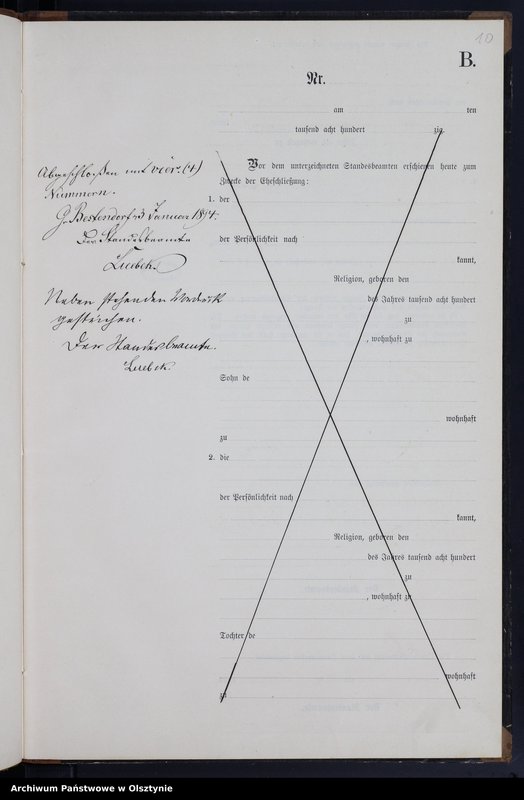 10
B.
Nr.
am ten
tausend acht hundert zig
Vor dem unterzeichneten Standesbeamten erschienen heute zum
Zwecke der Eheschließung:
1. der
der Persönlichkeit nach
kannt,
Religion, geboren den
des Jahres tausend acht hundert
zu
, wohnhaft zu
Sohn de
wohnhaft
zu
2. die
der Persönlichkeit nach
kannt,
Religion, geboren den
des Jahres tausend acht hundert
zu
, wohnhaft zu
Tochter de
wohnhaft
zu
Abgeschlossen mit vier (4)
Nummern.
Januar
Der Standesbeamte
Neben stehenden Vordruck
gestrichen.
Der Standesbeamte.
Archiwum Państwowe w Olsztynie